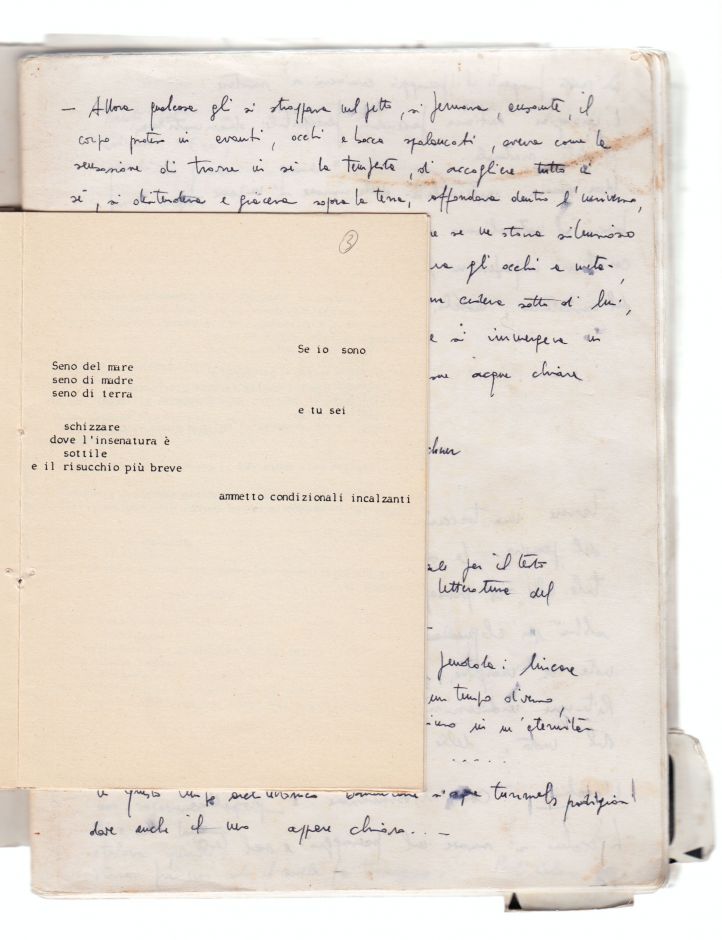 — Allora qualcosa gli si strappava nel petto, si fermava, ansante, il
corpo proteso in avanti, occhi e bocca spalancati, aveva come la
sensazione di trarre in sé la tempesta, di accogliere tutto in
sé, si distendeva e giaceva sopra la terra, affondava dentro l'universo,
se ne stava silenzioso
gli occhi a metà,
cedeva sotto di lui,
e si immergeva in
acque chiare
3
Se io sono
Seno del mare
seno di madre
seno di terra
e tu sei
schizzare
dove l'insenatura è
sottile
e il risucchio più breve
ammetto condizionali incalzanti
per il testo
letteratura del
pendola: lineare
un tempo diverso,
in un'eternità
.....
tunnels prodigiosi
dove anche il nero appare chiaro... —